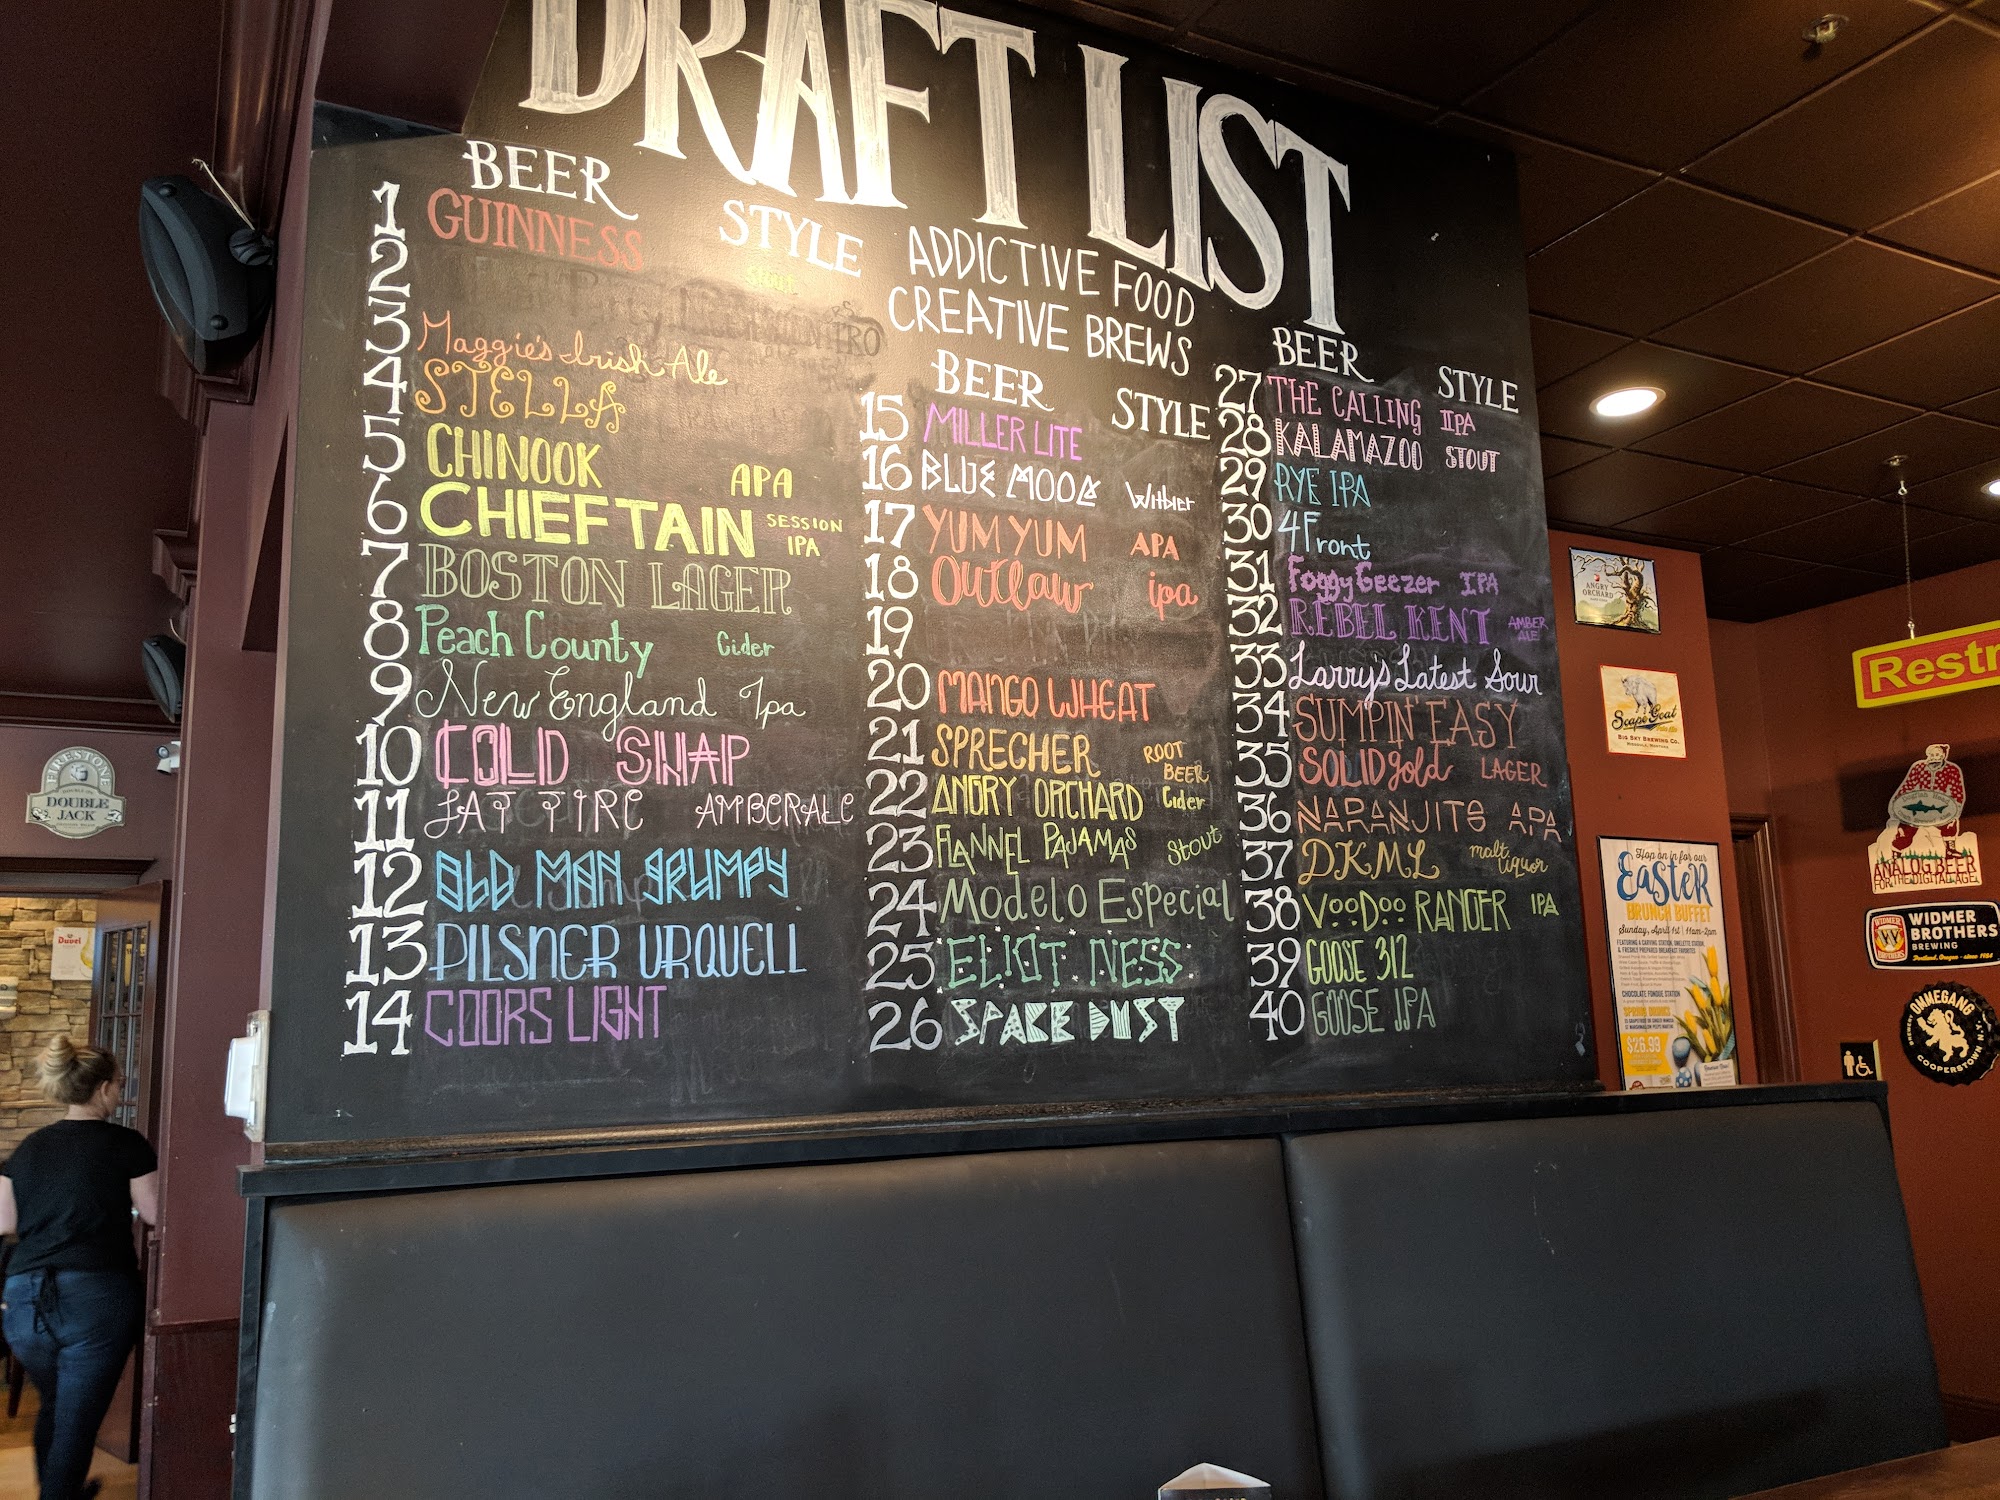 DRAFT LIST
ADDICTIVE FOOD
CREATIVE BREWS
BEER STYLE
1 GUINNESS Stout
2
3 Maggie's Irish Ale
4 STELLA
5 CHINOOK APA
6 CHIEFTAIN SESSION IPA
7 BOSTON LAGER
8 Peach County Cider
9 New England Ipa
10 COLD SNAP
11 FAT TIRE AMBER ALE
12 OLD MAN GRUMPY
13 PILSNER URQUELL
14 COORS LIGHT
BEER STYLE
15 MILLER LITE
16 BLUE MOON Witbier
17 YUM YUM APA
18 Outlaw ipa
19
20 MANGO WHEAT
21 SPRECHER ROOT BEER
22 ANGRY ORCHARD Cider
23 FLANNEL PAJAMAS Stout
24 Modelo Especial
25 ELIOT NESS
26 SPACE DUST
BEER STYLE
27 THE CALLING IIPA
28 KALAMAZOO STOUT
29 RYE IPA
30 4Front
31 Foggy Geezer IPA
32 REBEL KENT AMBER ALE
33 Larry's Latest Sour
34 SUMPIN' EASY
35 SOLID gold LAGER
36 NARANJITS APA
37 DKML malt liquor
38 VOODOO RANGER IPA
39 GOOSE 312
40 GOOSE IPA
FIRESTONE
DOUBLE JACK
Duvel
ANGRY ORCHARD
Scape Goat
BIG SKY BREWING CO.
MISSOULA, MONTANA
Hop on in for our
EaSteR
BRUNCH BUFFET
Sunday, April 1st | 11am-2pm
CHOCOLATE FONDUE STATION
SPRING DRINKS
$26.99
Restr
ANALOG BEER
FOR THE DIGITAL AGE
WIDMER BROTHERS
BREWING
Portland, Oregon - since 1984
OMMEGANG
COOPERSTOWN N.Y.